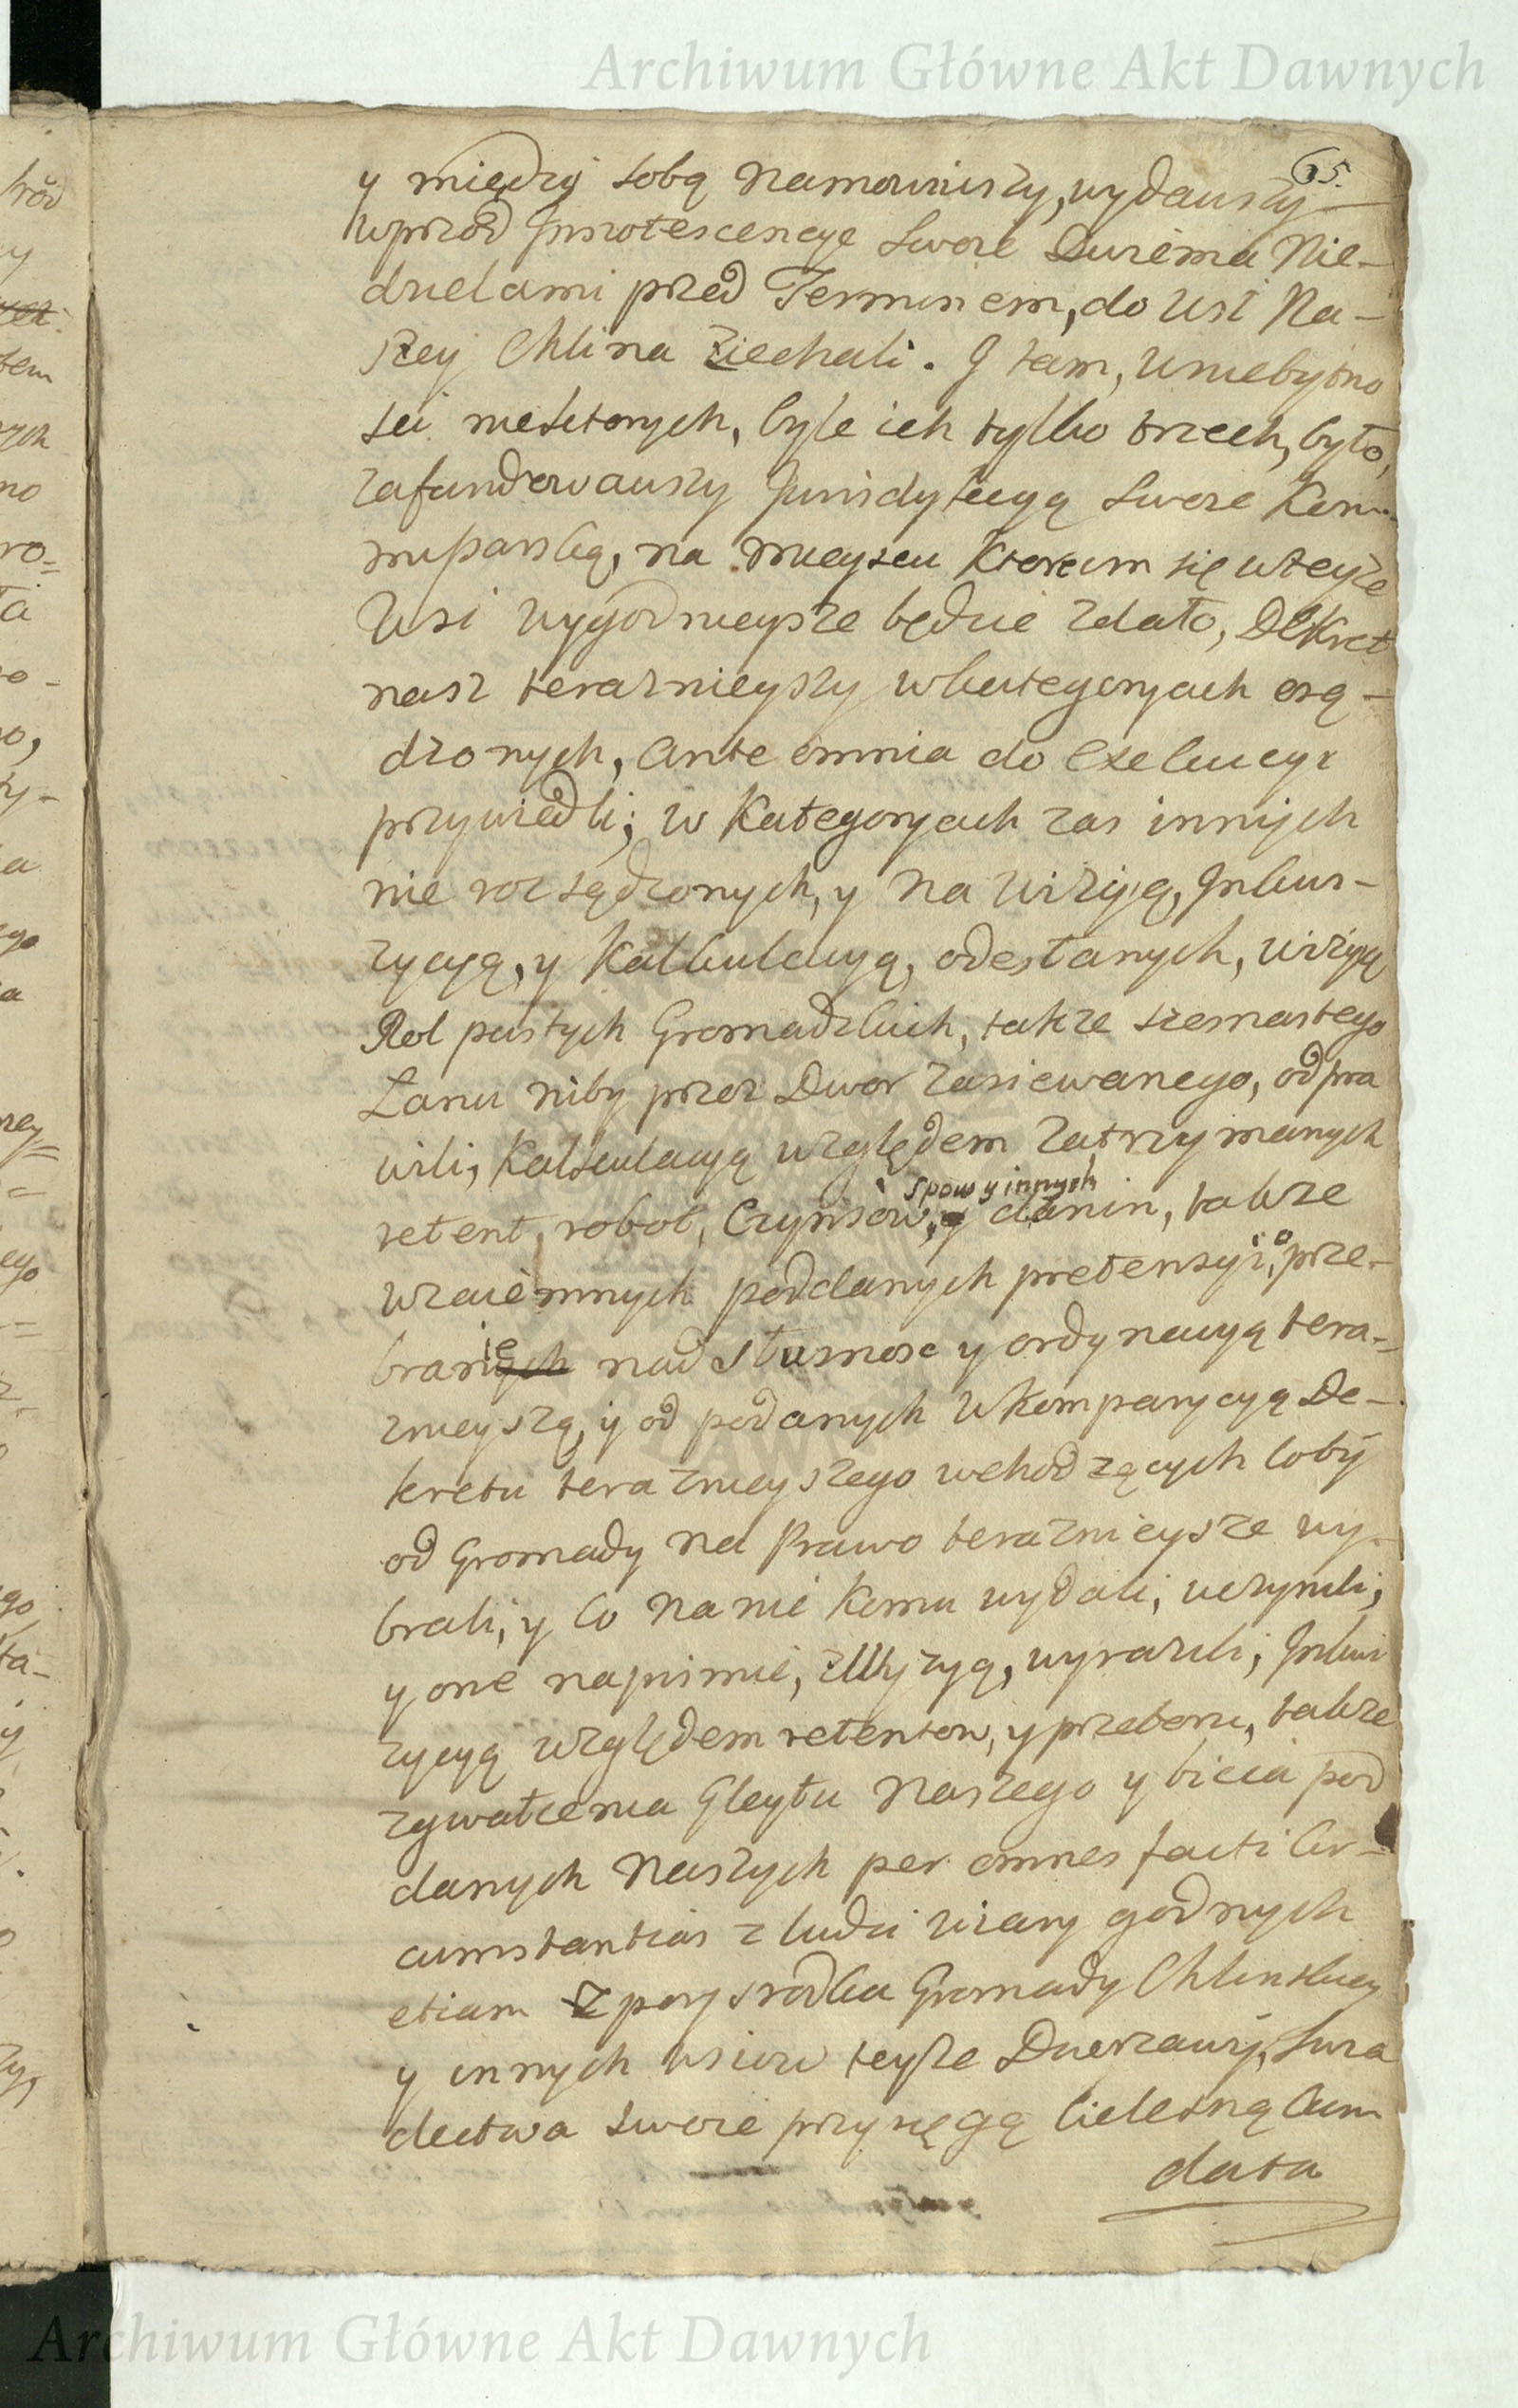 Archiwum Główne Akt Dawnych
65.
y między sobą namowiwszy, wydawszy
wprzod Jnnotescencye swoie dwiema Nie-
dzielami przed Terminem, do Wsi Na-
szey Chlina ziechali. J tam, w niebytno
sci niektorych, byle ich tylko trzech, było,
zafundowawszy Jurisdykcyą swoie Kom-
missarską, na mieyscu ktorem się wteyze
Wsi wygodnieysze będzie zdało, Dekret
nasz teraznieyszy w kategoryach osą-
dzonych, ante omnia do Exekucyi
przywiedli; w Kategoryach zas innych
nie rozsądzonych, y na Wizyą, Jnkwi-
zycyą, y Kalkulacyą, odesłanych, wizyą
Rol pustych Gromadzkich, takze siemastego
Łanu niby przez Dwor zasiewanego, odpra
wili, Kalkulacyą względem zatrzymanych
spow y innych
retent, robot, Czynszow, danin, takze
wzaiemnych poddanych pretensyi, o prze-
branie nad słusznosc y ordynacyą tera-
znieyszą, y od podanych w komparycyą De-
kretu teraznieyszego wchodzących coby
od Gromady na Prawo teraznieysze wy-
brali, y co na nie komu wydali, uczynili,
y one na pismie, z Wizyą, wyrazili; Jnkwi
zycyą względem retentow, y przeboru, takze
zgwałcenia Gleytu Naszego y bicia pod
danych Naszych per omnes facti Cir-
cumstantias z ludzi wiary godnych
etiam z posrzodka Gromady Chlinskiey
y innych wsiow teyze Dzierzawy, swia
dectwa swoie przysięgą cielesną com
data
Archiwum Główne Akt Dawnych